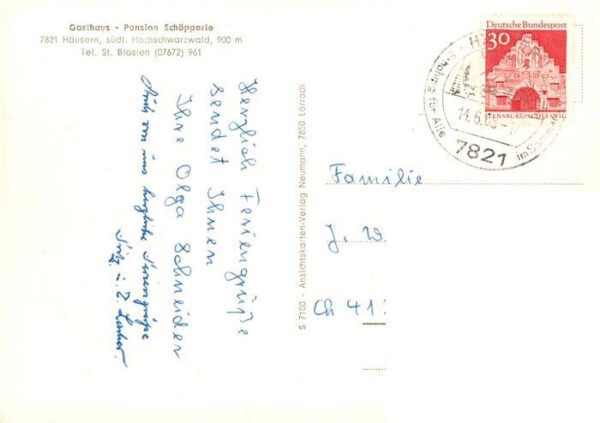 Gasthaus - Pension Schöpperle
7821 Häusern, südl. Hochschwarzwald, 900 m
Tel. St. Blasien (07672) 961
Herzlich Feriengrüße
sendet Ihnen
Ihre Olga Schneider
Auch von uns herzliche Feriengrüße
Fritz u.
S 7100 - Ansichtskarten-Verlag Neumann, 7850 Lörrach
Deutsche Bundespost
30
FLENSBURG/SCHLESWIG
14.6.
für Alle
im Sommer
7821
Familie
J. W.
Ch 41